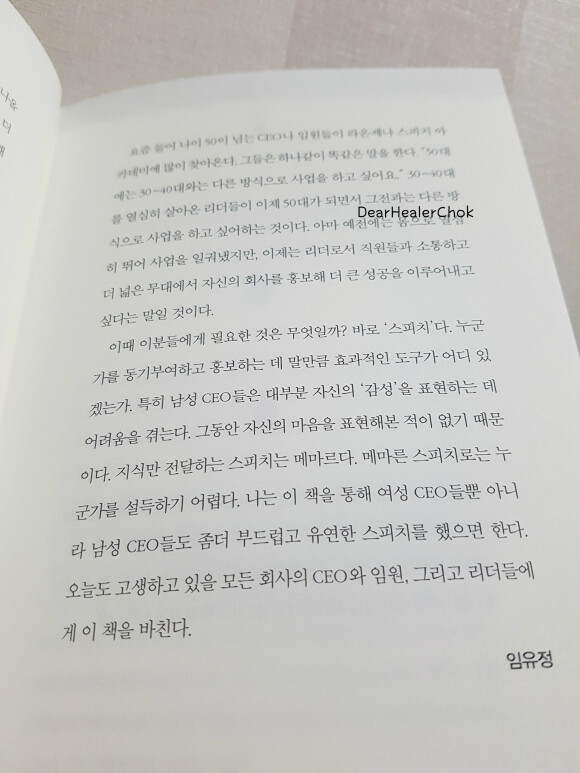 나을
더
때
요즘 들어 나이 50이 넘는 CEO나 임원들이 라온제나 스피치 아
카데미에 많이 찾아온다. 그들은 하나같이 똑같은 말을 한다. "50대
에는 30-40대와는 다른 방식으로 사업을 하고 싶어요." 30-40대
를 열심히 살아온 리더들이 이제 50대가 되면서 그전과는 다른 방
DearHealerChok
식으로 사업을 하고 싶어하는 것이다. 아마 예전에는 몸으로 열심
히 뛰어 사업을 일궈냈지만, 이제는 리더로서 직원들과 소통하고
더 넓은 무대에서 자신의 회사를 홍보해 더 큰 성공을 이루어내고
싶다는 말일 것이다.
이때 이분들에게 필요한 것은 무엇일까? 바로 '스피치'다. 누군
가를 동기부여하고 홍보하는 데 말만큼 효과적인 도구가 어디 있
겠는가. 특히 남성 CEO들은 대부분 자신의 '감성'을 표현하는 데
어려움을 겪는다. 그동안 자신의 마음을 표현해본 적이 없기 때문
이다. 지식만 전달하는 스피치는 메마르다. 메마른 스피치로는 누
군가를 설득하기 어렵다. 나는 이 책을 통해 여성 CEO들뿐 아니
라 남성 CEO들도 좀더 부드럽고 유연한 스피치를 했으면 한다.
오늘도 고생하고 있을 모든 회사의 CEO와 임원, 그리고 리더들에
게 이 책을 바친다.
임유정